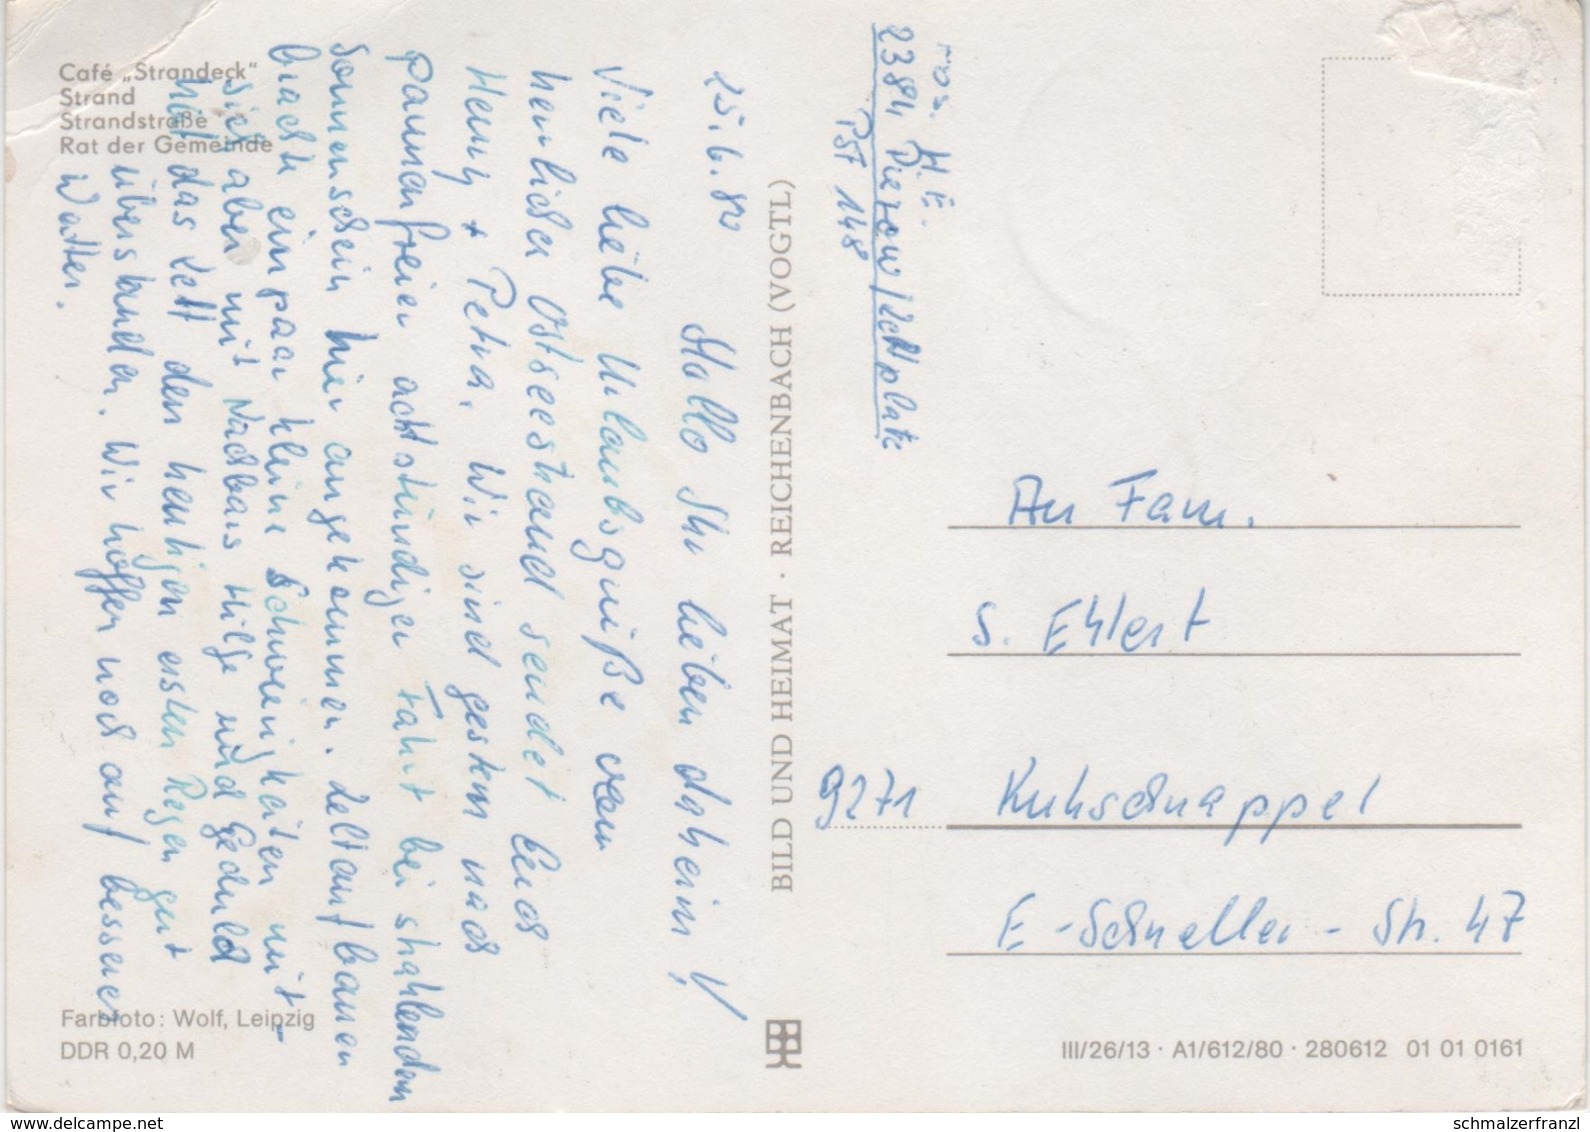 Café „Strandeck“
Strand
Strandstraße
Rat der Gemeinde
25.6.82
Hallo Ihr lieben daheim!
Viele liebe Urlaubsgrüße vom
herrlichen Ostseestrand sendet Euch
Henry + Petra. Wir sind gestern nach
pannenfreier achtstündiger Fahrt bei strahlendem
Sonnenschein hier angekommen. Zeltaufbauen
brachte ein paar kleine Schwierigkeiten mit
sich aber mit Nachbars Hilfe und Geduld
hat das Zelt den heutigen ersten Regen gut
überstanden. Wir hoffen noch auf besseres
Wetter.
Farbfoto: Wolf, Leipzig
DDR 0,20 M
BILD UND HEIMAT · REICHENBACH (VOGTL)
H. E.
2384 Pierow/Zeltplatz
PSF 148
An Fam.
S. Ehlert
9271 Kuhschnappel
E-Schneller-Str. 47
III/26/13 · A1/612/80 · 280612 01 01 0161
www.delcampe.net
schmalzerfranzl